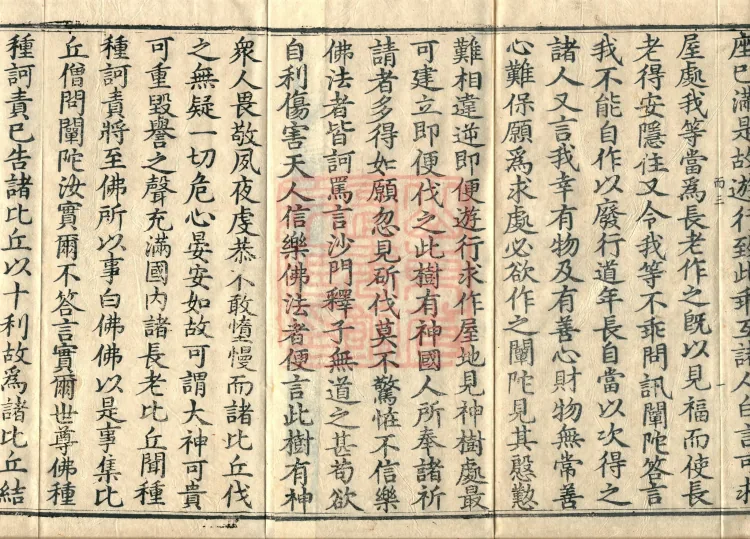 座已滿是故遊行到此乖互諸人白言可求
而三
屋處我等當爲長老作之旣以見福而使長
老得安隱住又令我等不乖問訊闡陀答言
我不能自作以廢行道年長自當以次得之
諸人又言我幸有物及有善心財物無常善
心難保願爲求處必欲作之闡陀見其慇懃
難相違逆即便遊行求作屋地見神樹處最
可建立即便伐之此樹有神國人所奉諸祈
請者多得如願忽見斫伐莫不驚恠不信樂
佛法者皆訶罵言沙門釋子無道之甚苟欲
自利傷害天人信樂佛法者便言此樹有神
衆人畏敬夙夜虔恭不敢憜慢而諸比丘伐
之無疑一切危心晏安如故可謂大神可貴
可重毀譽之聲充滿國內諸長老比丘聞種
種訶責將至佛所以事白佛佛以是事集比
丘僧問闡陀汝實爾不答言實爾世尊佛種
種訶責已告諸比丘以十利故爲諸比丘結